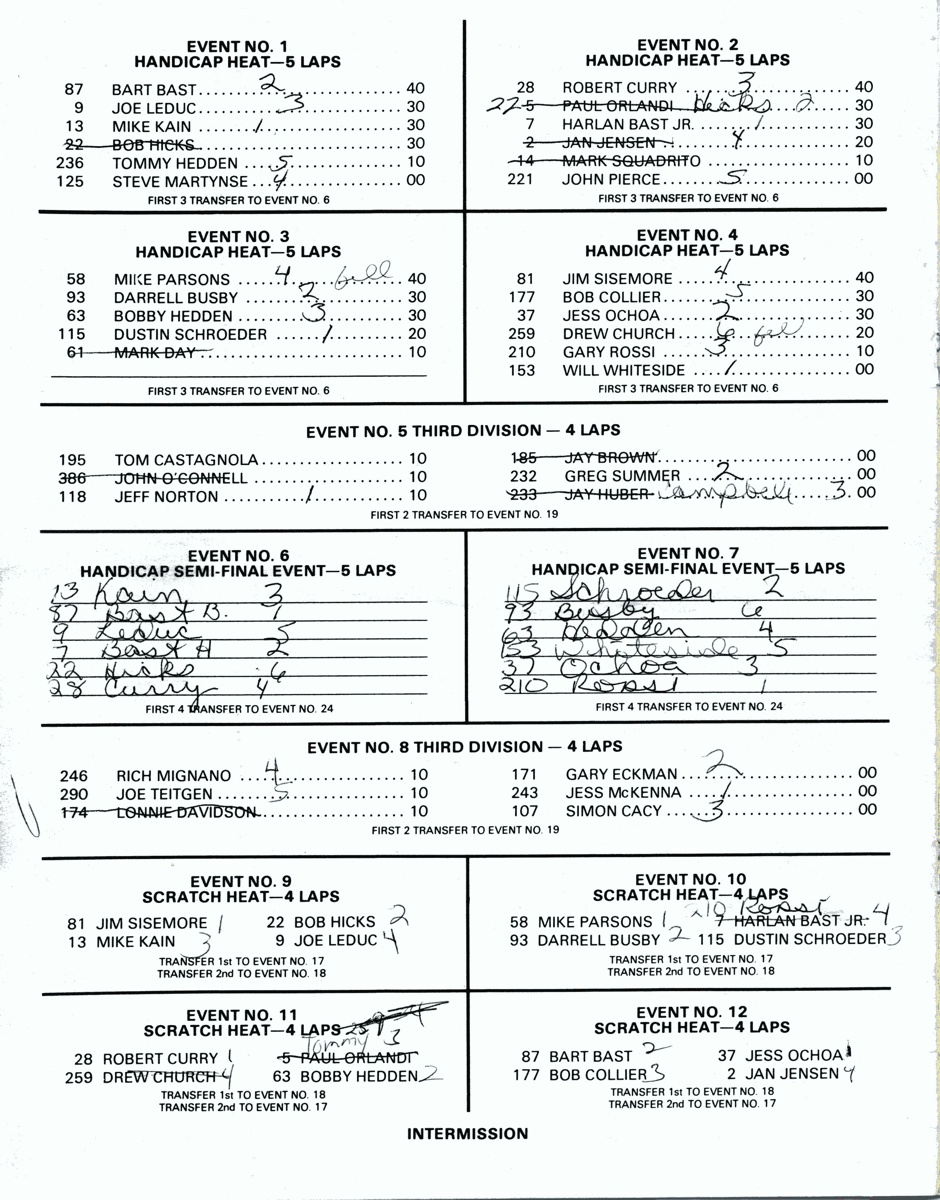 EVENT NO. 1
HANDICAP HEAT—5 LAPS
87 BART BAST 2 40
9 JOE LEDUC 3 30
13 MIKE KAIN 1 30
22 BOB HICKS 30
236 TOMMY HEDDEN 5 10
125 STEVE MARTYNSE 4 00
FIRST 3 TRANSFER TO EVENT NO. 6
EVENT NO. 2
HANDICAP HEAT—5 LAPS
28 ROBERT CURRY 3 40
22 5 PAUL ORLANDI Hicks 2 30
7 HARLAN BAST JR. 1 30
2 JAN JENSEN 4 20
14 MARK SQUADRITO 10
221 JOHN PIERCE 5 00
FIRST 3 TRANSFER TO EVENT NO. 6
EVENT NO. 3
HANDICAP HEAT—5 LAPS
58 MIKE PARSONS 4 fell 40
93 DARRELL BUSBY 2 30
63 BOBBY HEDDEN 3 30
115 DUSTIN SCHROEDER 1 20
61 MARK DAY 10
FIRST 3 TRANSFER TO EVENT NO. 6
EVENT NO. 4
HANDICAP HEAT—5 LAPS
81 JIM SISEMORE 4 40
177 BOB COLLIER 5 30
37 JESS OCHOA 2 30
259 DREW CHURCH 6 fell 20
210 GARY ROSSI 3 10
153 WILL WHITESIDE 1 00
FIRST 3 TRANSFER TO EVENT NO. 6
EVENT NO. 5 THIRD DIVISION — 4 LAPS
195 TOM CASTAGNOLA 10
386 JOHN O'CONNELL 10
118 JEFF NORTON 1 10
185 JAY BROWN 00
232 GREG SUMMER 2 00
233 JAY HUBER Campbell 3 00
FIRST 2 TRANSFER TO EVENT NO. 19
EVENT NO. 6
HANDICAP SEMI-FINAL EVENT—5 LAPS
13 Kain 3
87 Bast B. 1
9 Leduc 5
7 Bast H 2
22 Hicks 6
28 Curry 4
FIRST 4 TRANSFER TO EVENT NO. 24
EVENT NO. 7
HANDICAP SEMI-FINAL EVENT—5 LAPS
115 Schroeder 2
93 Busby 6
63 Hedden 4
153 Whiteside 5
37 Ochoa 3
210 Rossi 1
FIRST 4 TRANSFER TO EVENT NO. 24
EVENT NO. 8 THIRD DIVISION — 4 LAPS
246 RICH MIGNANO 4 10
290 JOE TEITGEN 5 10
174 LONNIE DAVIDSON 10
171 GARY ECKMAN 2 00
243 JESS McKENNA 1 00
107 SIMON CACY 3 00
FIRST 2 TRANSFER TO EVENT NO. 19
EVENT NO. 9
SCRATCH HEAT—4 LAPS
81 JIM SISEMORE 1 22 BOB HICKS 2
13 MIKE KAIN 3 9 JOE LEDUC 4
TRANSFER 1st TO EVENT NO. 17
TRANSFER 2nd TO EVENT NO. 18
EVENT NO. 10
SCRATCH HEAT—4 LAPS
210 Rossi
58 MIKE PARSONS 1 7 HARLAN BAST JR. 4
93 DARRELL BUSBY 2 115 DUSTIN SCHROEDER 3
TRANSFER 1st TO EVENT NO. 17
TRANSFER 2nd TO EVENT NO. 18
EVENT NO. 11
SCRATCH HEAT—4 LAPS
Tommy 3
28 ROBERT CURRY 1 5 PAUL ORLANDI
259 DREW CHURCH 4 63 BOBBY HEDDEN 2
TRANSFER 1st TO EVENT NO. 18
TRANSFER 2nd TO EVENT NO. 17
EVENT NO. 12
SCRATCH HEAT—4 LAPS
87 BART BAST 2 37 JESS OCHOA 1
177 BOB COLLIER 3 2 JAN JENSEN 4
TRANSFER 1st TO EVENT NO. 18
TRANSFER 2nd TO EVENT NO. 17
INTERMISSION